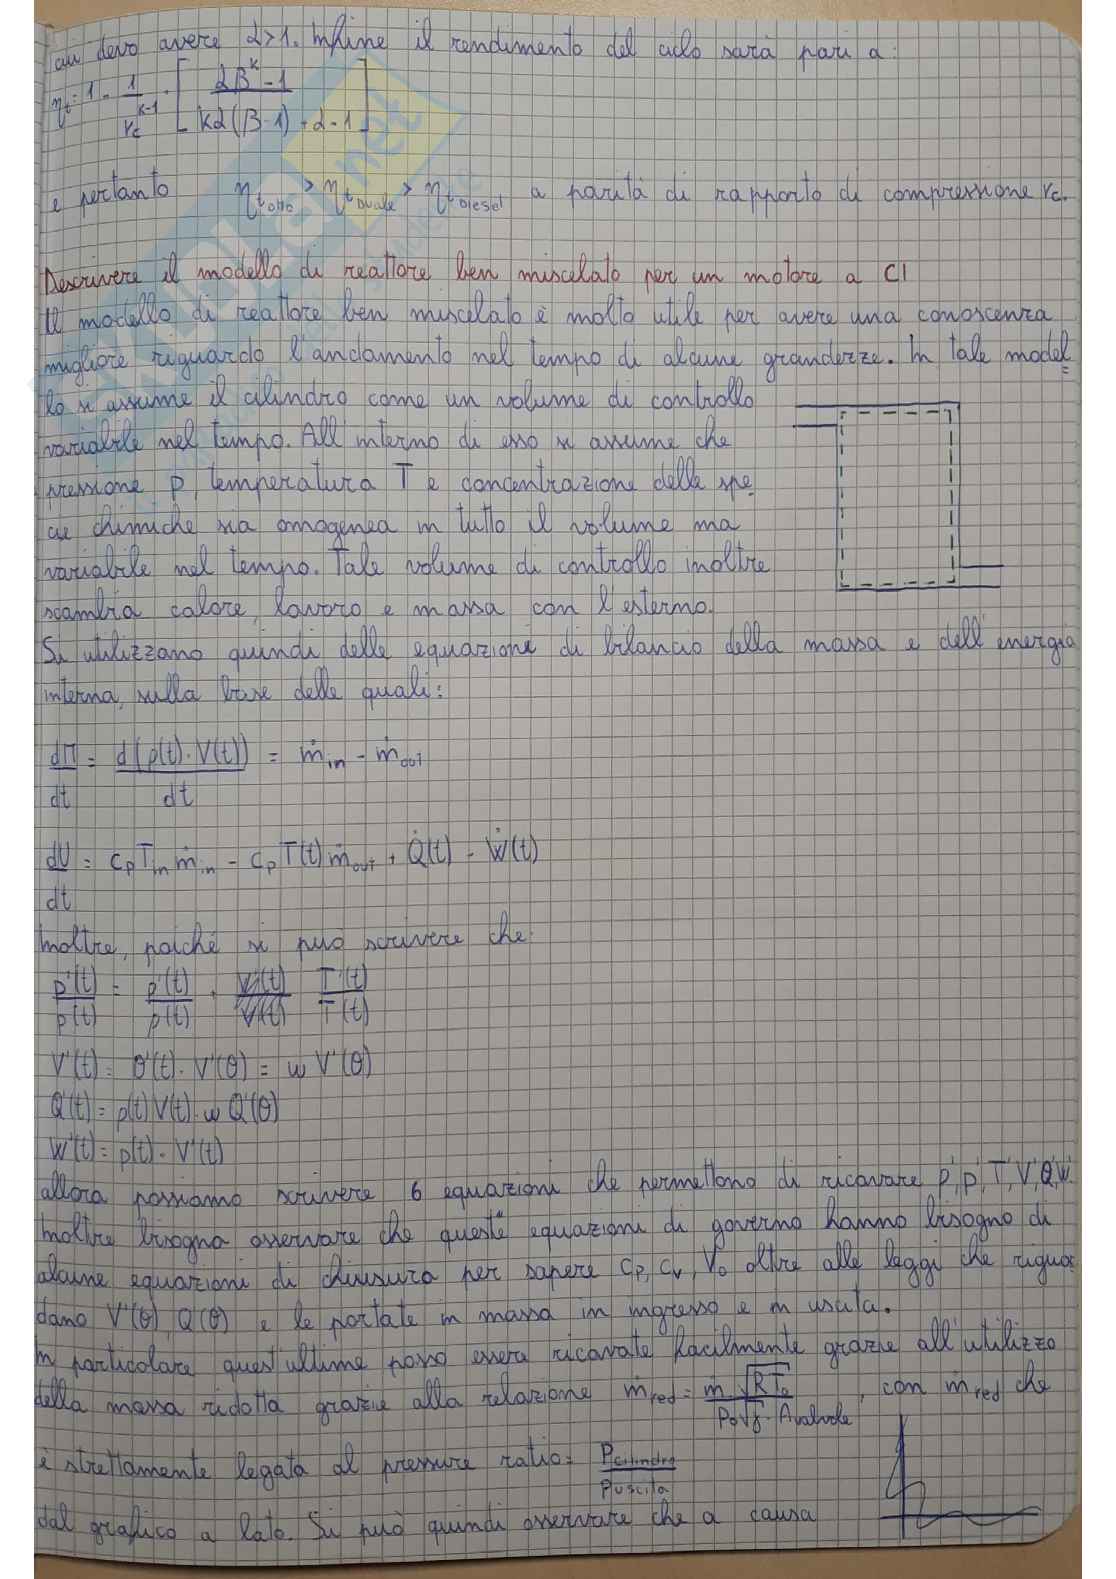 cui devo avere α>1. Infine il rendimento del ciclo sarà pari a:
ηt = 1 - 1/rc^(k-1) · [ (αβ^k - 1) / (kα(β-1) + α - 1) ]
e pertanto ηt otto > ηt Duale > ηt Diesel a parità di rapporto di compressione rc.
Descrivere il modello di reattore ben miscelato per un motore a CI
Il modello di reattore ben miscelato è molto utile per avere una conoscenza
migliore riguardo l'andamento nel tempo di alcune grandezze. In tale model
lo si assume il cilindro come un volume di controllo
variabile nel tempo. All'interno di esso si assume che
pressione p, temperatura T e concentrazione delle spe
cie chimiche sia omogenea in tutto il volume ma
variabile nel tempo. Tale volume di controllo inoltre
scambia calore, lavoro e massa con l'esterno.
Si utilizzano quindi delle equazioni di bilancio della massa e dell'energia
interna, sulla base delle quali:
dM/dt = d(ρ(t)·V(t))/dt = ṁin - ṁout
dU/dt = cp Tin ṁin - cp T(t) ṁout + Q̇(t) - Ẇ(t)
Inoltre, poiché si può scrivere che:
p'(t)/p(t) = ρ'(t)/ρ(t) + T'(t)/T(t)
V'(t) = θ'(t)·V'(θ) = w V'(θ)
Q'(t) = ρ(t)V(t)·w Q'(θ)
W'(t) = p(t)·V'(t)
allora possiamo scrivere 6 equazioni che permettono di ricavare p', ρ', T', V', Q', W'.
Inoltre bisogna osservare che queste equazioni di governo hanno bisogno di
alcune equazioni di chiusura per sapere cp, cv, V0 oltre alle leggi che riguar
dano V'(θ), Q'(θ) e le portate in massa in ingresso e in uscita.
In particolare quest'ultime posso essere ricavate facilmente grazie all'utilizzo
della massa ridotta grazie alla relazione ṁred = ṁ √RT0 / (P0√γ · Avalvole), con ṁred che
è strettamente legata al pressure ratio = Pcilindro/Puscita
dal grafico a lato. Si può quindi osservare che a causa